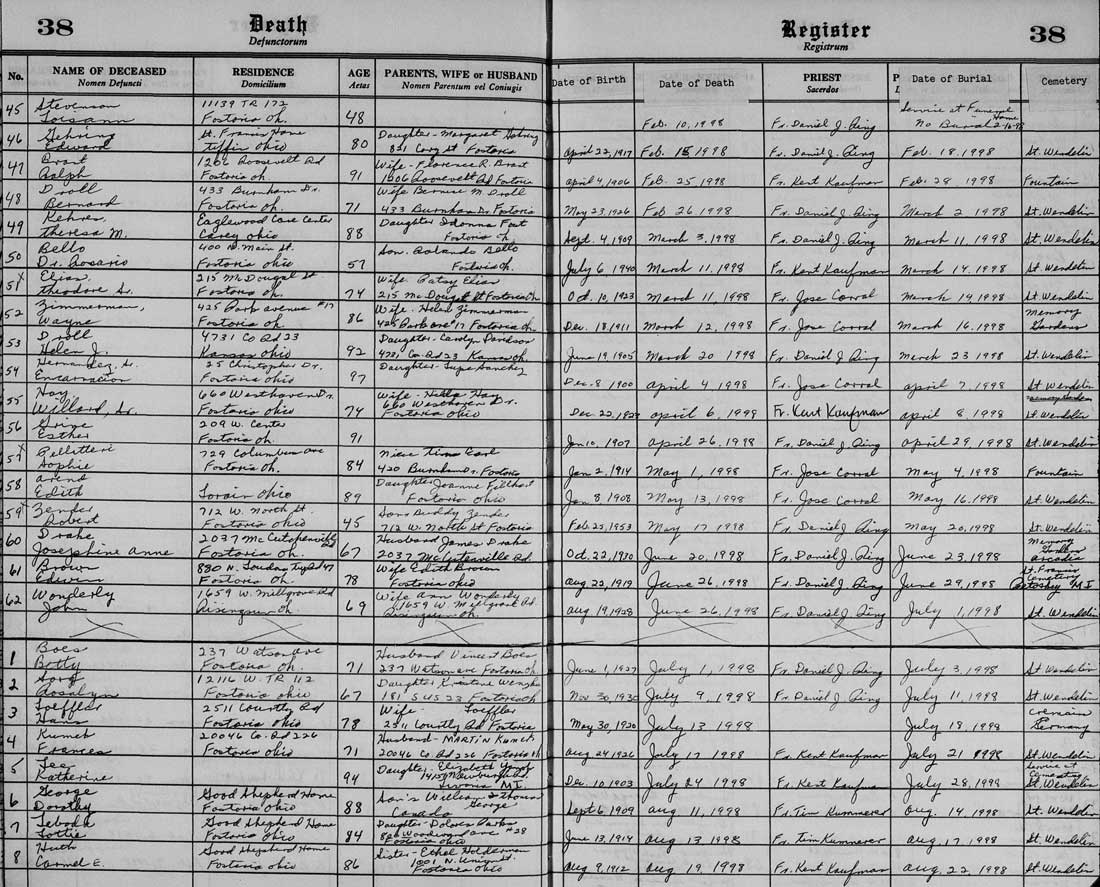 38 Death Register 38
Defunctorum Registrum
No. NAME OF DECEASED RESIDENCE AGE PARENTS, WIFE or HUSBAND Date of Birth Date of Death PRIEST Date of Burial Cemetery
Nomen Defuncti Domicilium Aetas Nomen Parentum vel Coniugis Sacerdos
45 Stevenson 11139 TR 172 48 Service at Funeral Home
Fostoria Oh. Feb. 10, 1998 Fr. Daniel J. Ring No Burial 2-16-98
46 Gehring St. Francis Home 80 Daughter - Margaret Gehring
Edward Tiffin Ohio 821 Cory St Fostoria April 22, 1917 Feb. 15, 1998 Fr. Daniel J. Ring Feb. 18, 1998 St. Wendelin
47 Brant Roosevelt Rd 91 Wife - Florence R. Brant
Ralph Fostoria Oh. Roosevelt Rd Fostoria April 4, 1906 Feb. 25, 1998 Fr. Kent Kaufman Feb. 28 1998 Fountain
48 Droll 433 Burnham Dr. 71 Wife Bernice M. Droll
Bernard Fostoria Oh. 433 Burnham Dr. Fostoria May 23, 1926 Feb 26, 1998 Fr. Daniel J. Ring March 2 1998 St. Wendelin
49 Eaglewood Care Center 88 Daughter
Theresa M. Carey Ohio Fostoria Oh Sept. 4, 1909 March 3, 1998 Fr. Daniel J. Ring March 11, 1998 St. Wendelin
50 Bello 400 N. Main St. 57 Son. Rolando Bello
Dr. Rosario Fostoria Ohio Fostoria Oh. July 6 1940 March 11, 1998 Fr. Kent Kaufman March 14, 1998 St. Wendelin
51 x Elias 215 McDougal St 74 Wife - Patsy Elias
Theodore Sr. Fostoria Oh. 215 McDougal St Fostoria Oh Oct. 10, 1923 March 11, 1998 Fr. Jose Corral March 14, 1998 St. Wendelin
52 Zimmerman, 425 Park Avenue #17 86 Wife - Helen Zimmerman Memory
Wayne Fostoria Oh. 425 Park Ave #17 Fostoria Oh. Dec. 18, 1911 March 12, 1998 Fr. Jose Corral March 16, 1998 Gardens
53 Droll 4731 Co Rd 23 92 Daughter - Carolyn Davidson
Helen J. Kansas Ohio Co Rd 23 Kansas Oh. June 19, 1905 March 20 1998 Fr. Daniel J. Ring March 23 1998 St. Wendelin
54 Hernandez, Sr. 25 Christopher Dr. 97 Daughter - Lupe Sanchez
Encarnacion Fostoria Ohio Dec. 8 1900 April 4 1998 Fr. Jose Corral April 7, 1998 St Wendelin
55 Hay 660 Westhaven Dr. 74 Wife - Hilda Hay
Willard, Sr. Fostoria Ohio 660 Westhaven Dr. Fostoria Ohio Dec. 22, 1923 April 6, 1998 Fr. Kent Kaufman April 8, 1998 St. Wendelin
56 209 W. Center 91
Esther Fostoria Oh. Jan 10, 1907 April 26, 1998 Fr. Daniel J. Ring April 29, 1998 St. Wendelin
57 x Pelletteri 729 Columbus Ave 84 Niece Tina Earl
Sophie Fostoria Oh. 420 Burnham Dr. Fostoria Jan 2, 1914 May 1, 1998 Fr. Jose Corral May 4, 1998 Fountain
58 Arend 89 Daughter Joanne Fillhart
Edith Lorain Ohio Fostoria Ohio Jan 8 1908 May 13, 1998 Fr. Jose Corral May 16, 1998 St. Wendelin
59 Zender 712 W. North St. 45 Son Buddy Zender
Robert Fostoria Ohio 712 W. North St Fostoria Feb. 23, 1953 May 17 1998 Fr. Daniel J. Ring May 20, 1998 St. Wendelin
60 Drake 2037 McCutchenville Rd 67 Husband James Drake Memory Gardens
Josephine Anne Fostoria Oh. 2037 McCutchenville Rd. Oct. 22, 1930 June 20, 1998 Fr. Daniel J. Ring June 23, 1998 Arcadia
61 Brown 880 N. Loudon Twp Rd 47 78 Wife Edith Brown St. Francis Cemetery
Edwin Fostoria Oh. Fostoria Ohio Aug 22, 1919 June 26, 1998 Fr. Daniel J. Ring June 29, 1998 Petoskey MI
62 Wonderly 1659 W. Millgrove Rd 69 Wife Ann Wonderly
John Risingsun Oh. 1659 W. Millgrove Rd. Risingsun Oh. Aug 19, 1928 June 26, 1998 Fr. Daniel J. Ring July 1, 1998 St. Wendelin
1 Boes 237 Watson Ave 71 Husband Vincent Boes
Betty Fostoria Oh. 237 Watson Ave Fostoria Oh June 1, 1927 July 1, 1998 Fr. Daniel J. Ring July 3, 1998 St Wendelin
2 12116 W. TR 112 67 Daughter Kristine
Rosalyn Fostoria Ohio US 23 Fostoria Oh Nov 30, 1930 July 9, 1998 Fr. Daniel J. Ring July 11, 1998 St. Wendelin
3 Loeffler 2511 Courtly Rd 78 Wife - Loeffler Cremains
Hans Fostoria Ohio 2511 Courtly Rd Fostoria May 30, 1920 July 13 1998 July 18, 1998 Germany
4 20046 Co. Rd 226 71 Husband - Martin
Frances Fostoria Ohio 20046 Co. Rd 226 Fostoria Oh Aug 24 1926 July 17 1998 Fr. Kent Kaufman July 21 1998 St. Wendelin
5 Lee 94 Daughter - Elizabeth Service at Cemetery
Katherine Newburgh Rd. Livonia MI. Dec. 10, 1903 July 24 1998 Fr. Kent Kaufman July 28, 1998 St. Wendelin
6 George Good Shepherd Home 88 Son's William & Thomas George
Dorothy Fostoria Ohio Canada Sept 6, 1909 Aug 11, 1998 Fr. Tim Kummerer Aug. 14, 1998 St. Wendelin
7 Good Shepherd Home 84 Daughter - Dolores
Lottie Fostoria Ohio Woodward Ave #28 Fostoria Ohio June 13, 1914 Aug 13 1998 Fr. Tim Kummerer Aug. 17 1998 St. Wendelin
8 Huth Good Shepherd Home 86 Sister - Ethel Holderman
Carmel E. Fostoria Ohio 1001 N. Union St. Fostoria Ohio Aug 9, 1912 Aug 19, 1998 Fr. Kent Kaufman Aug. 22, 1998 St. Wendelin